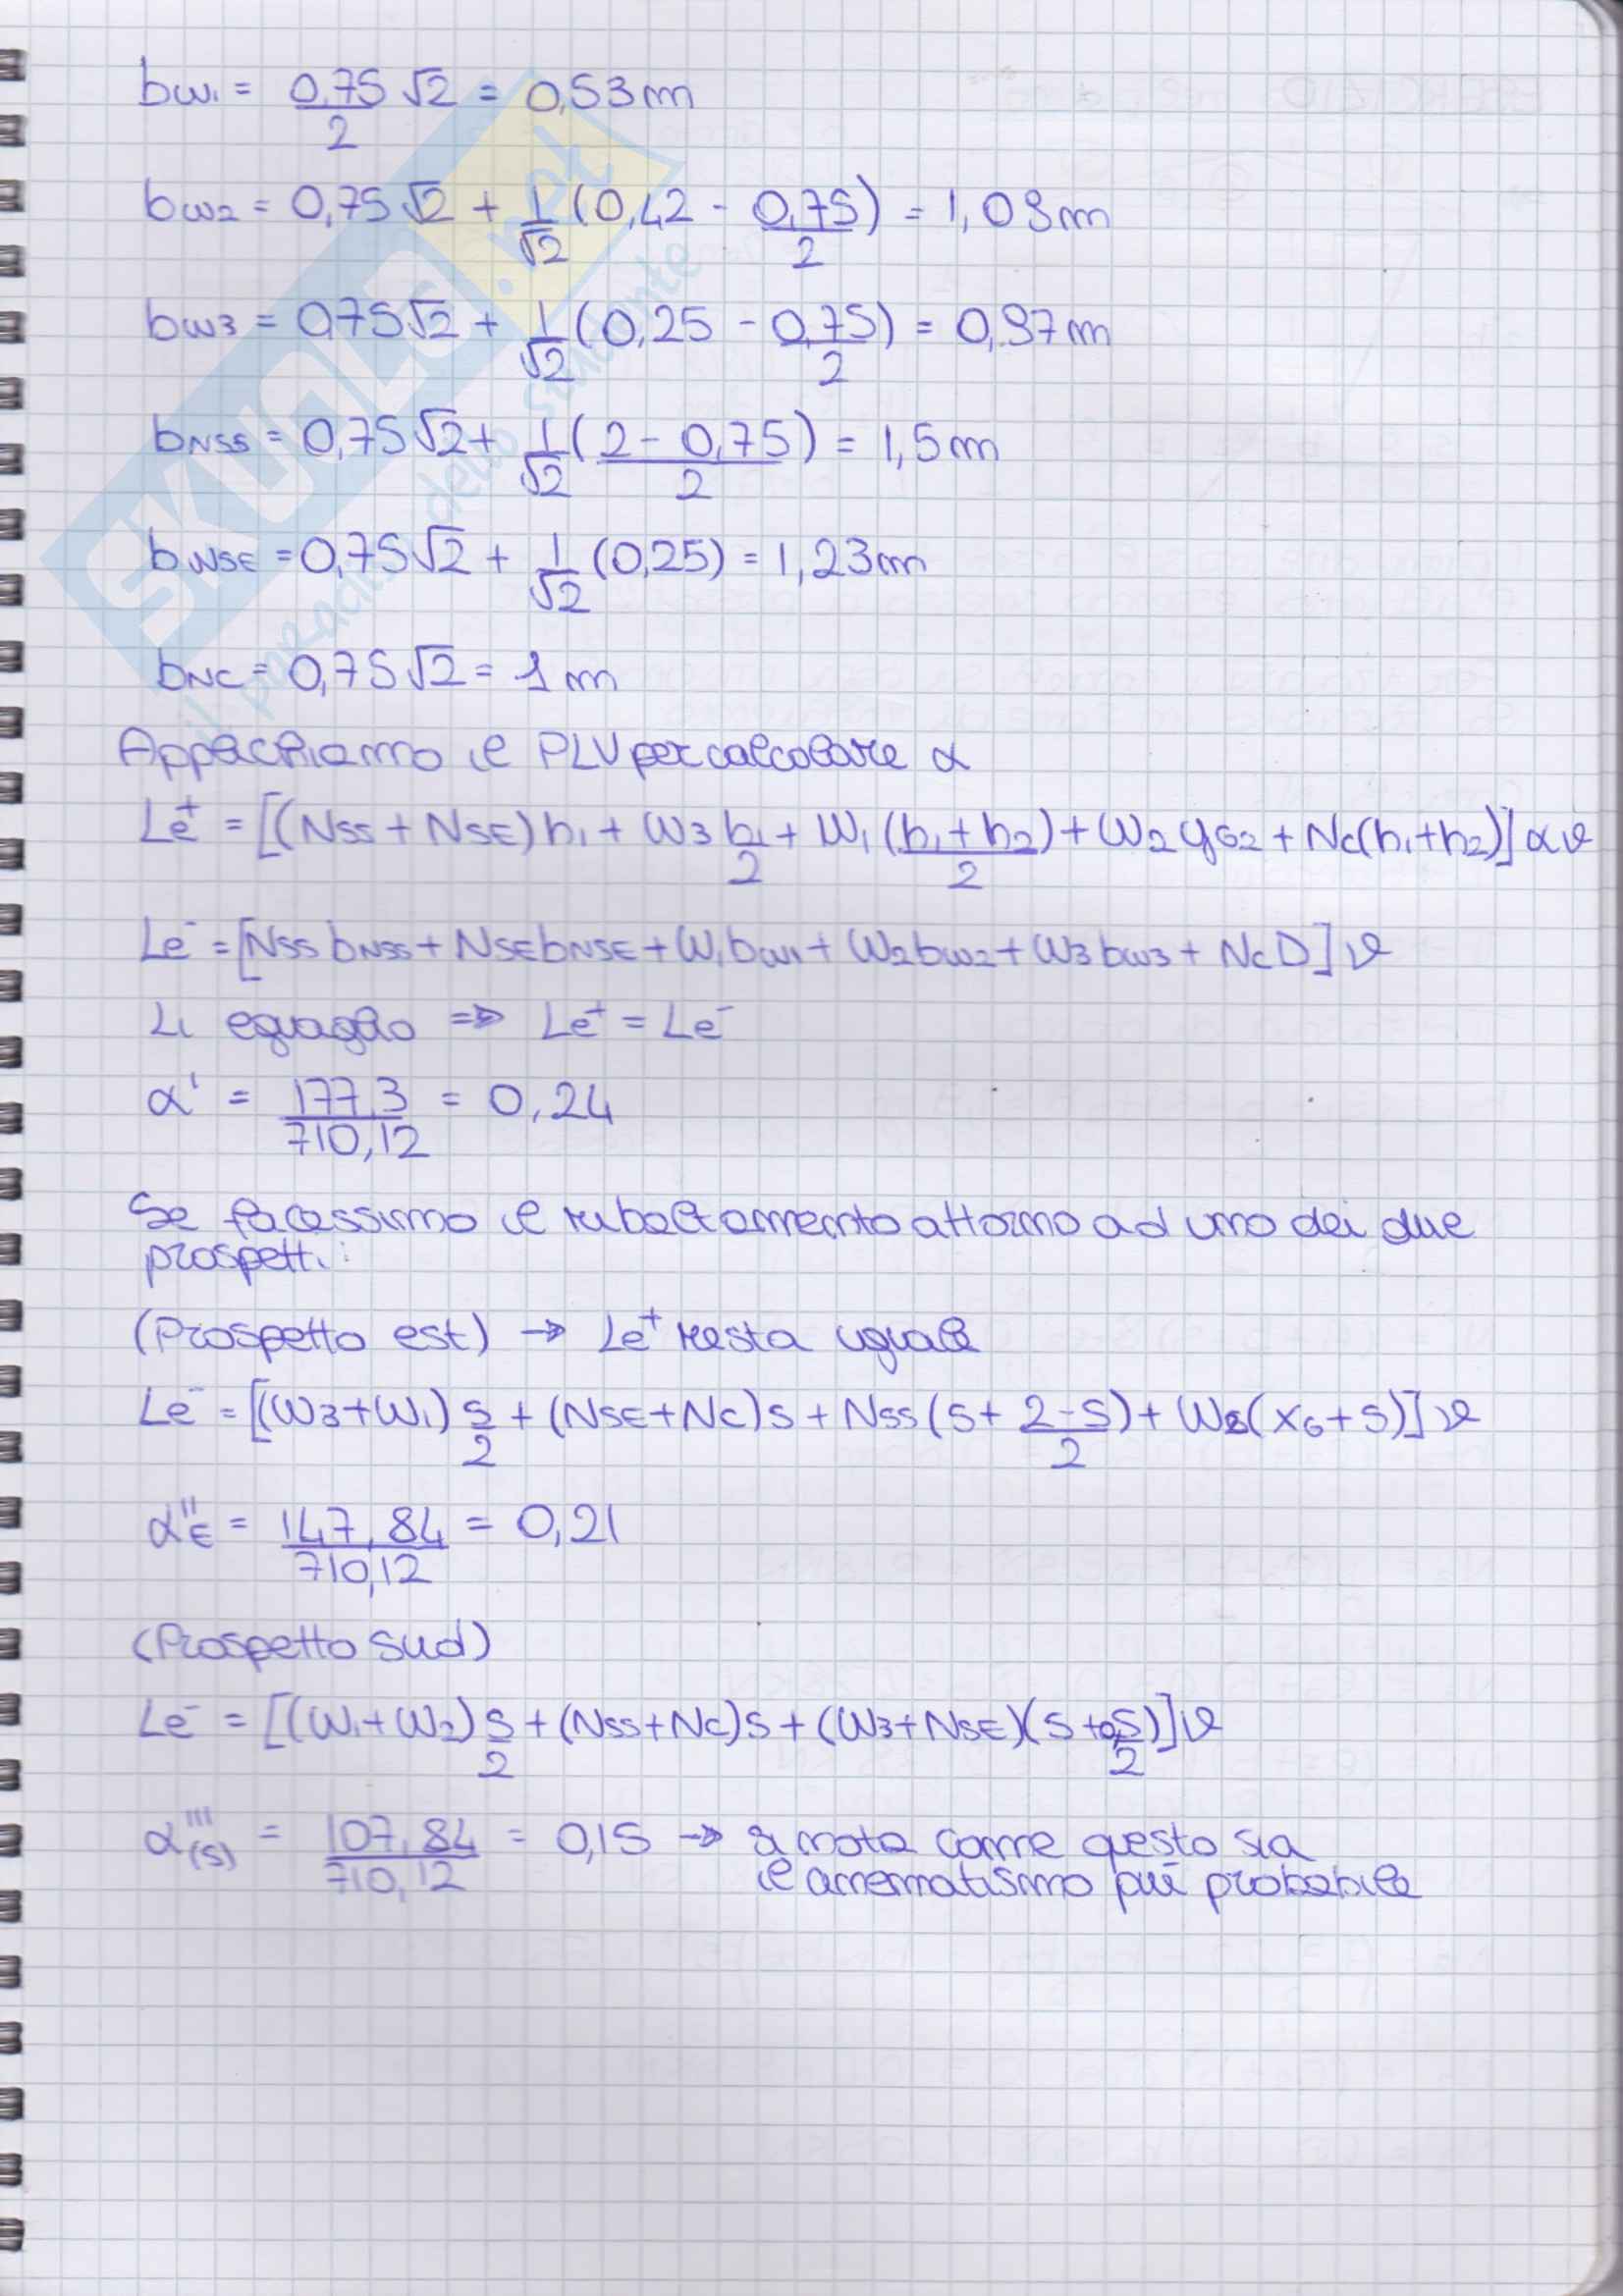 bw1 = 0,75/2 √2 = 0,53 m
bw2 = 0,75√2 + 1/√2 (0,42 - 0,75/2) = 1,09 m
bw3 = 0,75√2 + 1/√2 (0,25 - 0,75/2) = 0,97 m
bNSS = 0,75√2 + 1/√2 ((2 - 0,75)/2) = 1,5 m
bNSE = 0,75√2 + 1/√2 (0,25) = 1,23 m
bNC = 0,75√2 = 1 m
Applichiamo il PLV per calcolare α
Le⁺ = [(NSS + NSE)h1 + W3 h1/2 + W1 (h1+h2)/2 + W2 yG2 + Nc(h1+h2)] αϑ
Le⁻ = [NSS bNSS + NSE bNSE + W1bw1 + W2bw2 + W3bw3 + NcD]ϑ
Li eguaglio ⇒ Le⁺ = Le⁻
α' = 177,3/710,12 = 0,24
Se facessimo il ribaltamento attorno ad uno dei due
prospetti:
(Prospetto est) → Le⁺ resta uguale
Le⁻ = [(W3+W1) s/2 + (NSE+NC)s + NSS(s + (2-s)/2) + W2(xG+s)]ϑ
α''E = 147,84/710,12 = 0,21
(Prospetto sud)
Le⁻ = [(W1+W2) s/2 + (NSS+NC)s + (W3+NSE)(s + 0,5/2)]ϑ
α'''(S) = 107,84/710,12 = 0,15 → si nota come questo sia
il cinematismo più probabile
SKUOLA.net
il paradiso dello studente